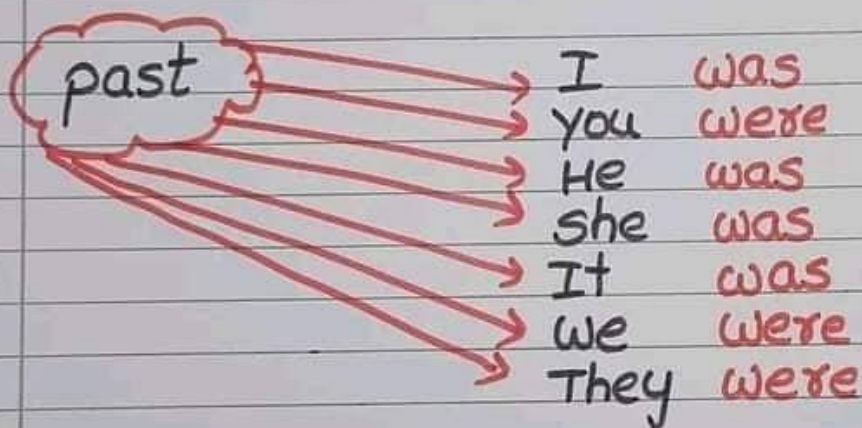 past
I was
you were
He was
she was
It was
we were
They were